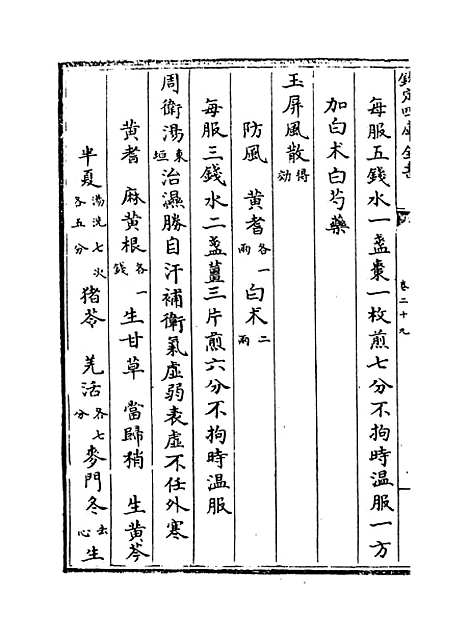 欽定四庫全書
卷二十九
每服五錢水一盞棗一枚煎七分不拘時温服一方
加白术白芍藥
玉屏風散得効
防風 黄耆各一兩 白术二兩
每服三錢水二盞薑三片煎六分不拘時温服
周衛湯東垣治濕勝自汗補衛氣虛弱表虛不任外寒
黄耆 麻黄根各一錢 生甘草 當歸稍 生黄芩
半夏湯洗七次各五分 猪苓 羌活各七分 麥門冬去心 生